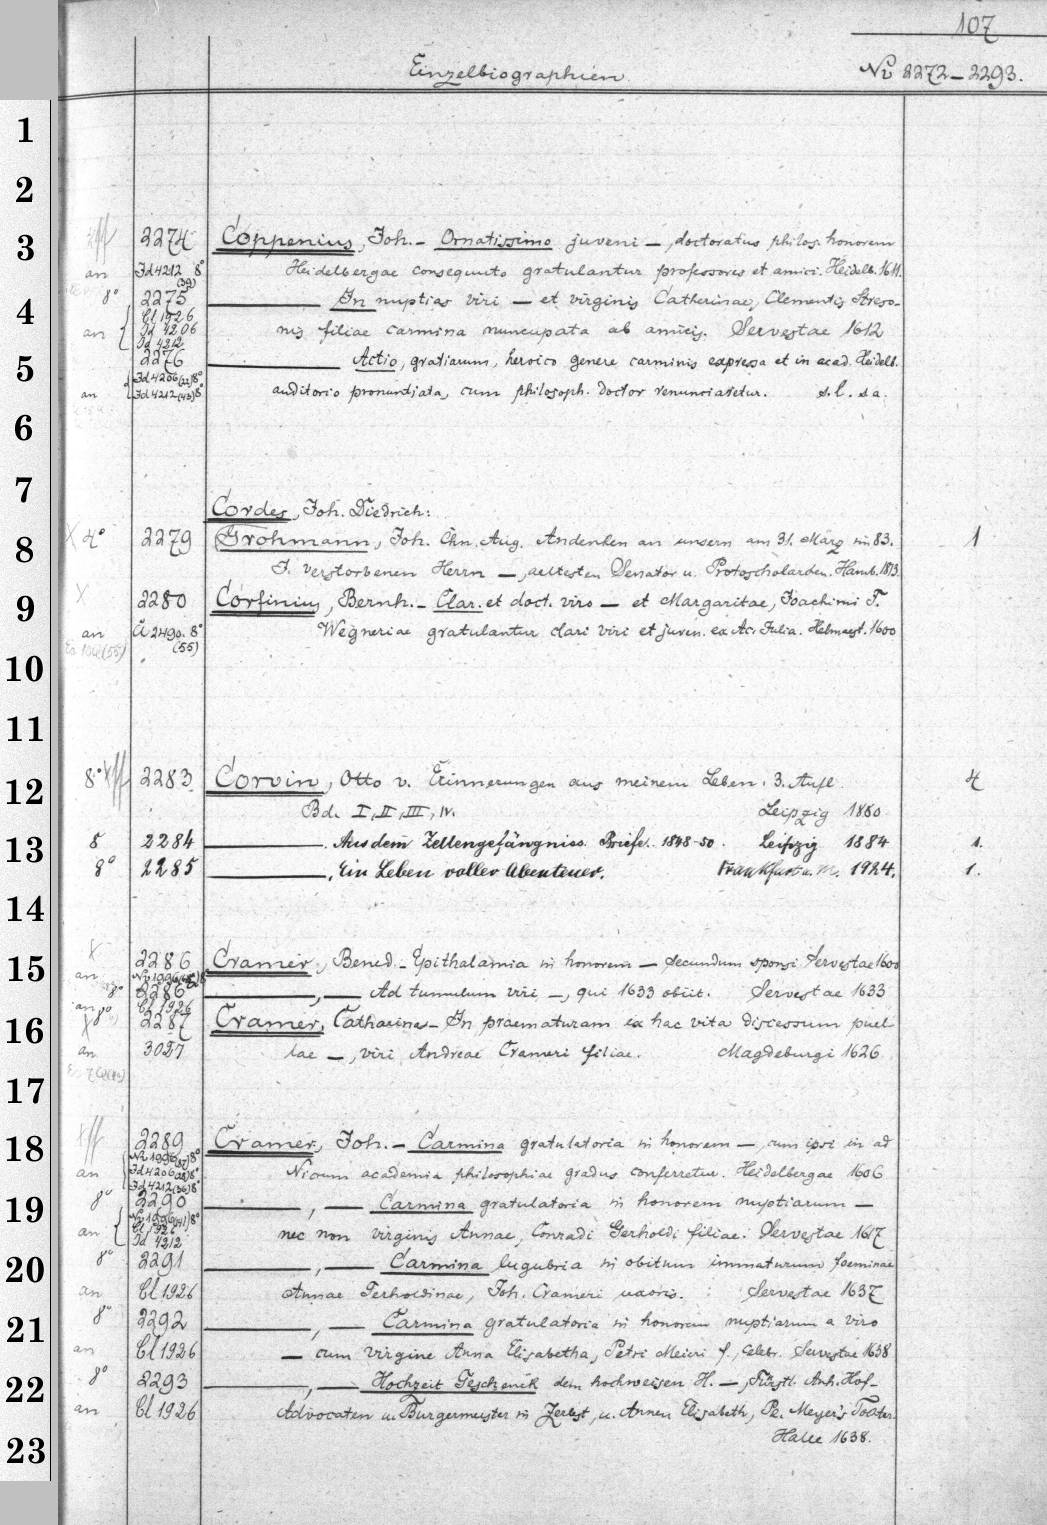 107
Einzelbiographien
No 2272-2293.
1
2
3
2274
Coppenius, Joh. - Ornatissimo juveni —, doctoratus philos. honorem
an
Id 4212 8°
(39)
Heidelbergae consequuto gratulantur professores et amici. Heidelb. 1611.
8°
2275
4
Cl 1926
In nuptias viri — et virginis Catherinae, Clementis Streso-
an
Id 4206
Id 4212
nis filiae carmina nuncupata ab amicis. Servestae 1612
5
2276
Actio, gratiarum, heroico genere carminis expressa et in acad. Heidelb.
Id 4206 (22) 8°
an
Id 4212 (43) 8°
auditorio pronundiata, cum philosoph. doctor renunciaretur. s. l. s a.
6
7
Cordes, Joh. Diedrich:
8
4°
2279
Grohmann, Joh. Chn. Aug. Andenken an unsern am 31. März im 83.
1
J. verstorbenen Herrn —, aeltesten Senator u. Protoscholarchen. Hamb. 1813.
9
2280
Corfinius, Bernh. - Clar. et doct. viro — et Margaritae, Joachimi F.
an
Li 2490. 8°
(55)
Wegneriae gratulantur clari viri et juven. ex Ac. Julia. Helmaest. 1600
10
11
12
8°
2283
Corvin, Otto v. Erinnerungen aus meinem Leben. 3. Aufl.
4
Bd. I, II, III, IV. Leipzig 1880
13
8
2284
Aus dem Zellengefängniss. Briefe. 1848-50. Leipzig 1884
1.
8°
2285
, Ein Leben voller Abenteuer. Frankfurt a. M. 1924.
1.
14
15
2286
Cramer, Bened. - Epithalamia in honorem — secundum sponsi Servestae 1600
an
8°
2286
, — Ad tumulum viri —, qui 1633 obiit. Servestae 1633
an
Cl 1926
16
8°
2287
Cramer, Catharina - In praematuram ex hac vita discessum puel-
an
3027
lae —, viri Andreae Crameri filiae. Magdeburgi 1626
17
18
2289
Cramer, Joh. - Carmina gratulatoria in honorem —, cum ipsi in ad
an
Id 4206 (28) 8°
Id 4212 (36) 8°
Nicrum academia philosophiae gradus conferretur. Heidelbergae 1606
19
8°
2290
, — Carmina gratulatoria in honorem nuptiarum —
an
Cl 1926
Id 4212
nec non virginis Annae, Conradi Gerholdi filiae. Servestae 1617
20
8°
2291
, — Carmina lugubria in obitum immaturum foeminae
an
Cl 1926
Annae Gerholdinae, Joh. Crameri uxoris. Servestae 1637
21
8°
2292
, — Carmina gratulatoria in honorem nuptiarum a viro
an
Cl 1926
— cum virgine Anna Elisabetha, Petri Meieri f., celebr. Servestae 1638
22
8°
2293
, — Hochzeit Geschenck dem hochweisen H. —, Fürstl. Anh. Hof-
an
Cl 1926
Advocaten u. Burgermeister in Zerbst, u. Annen Elisabeth, Pe. Meyer's Tochter.
23
Halle 1638.